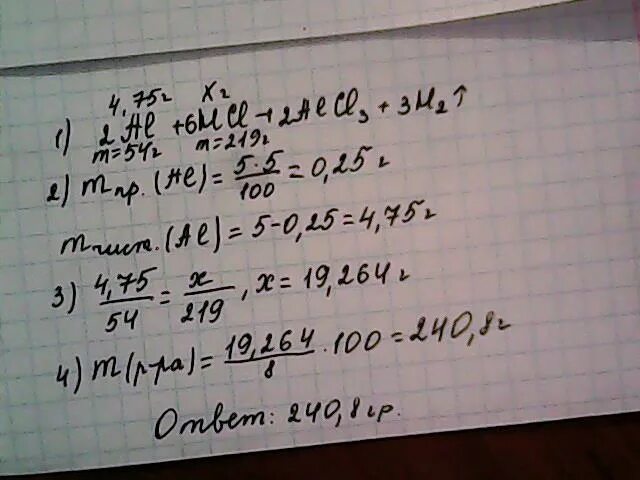 4,75г   xг
1) 2Al + 6HCl → 2AlCl₃ + 3H₂↑
m=54г   m=219г
2) m пр. (Al) = 5·5/100 = 0,25 г
m чист. (Al) = 5-0,25 = 4,75 г
3) 4,75/54 = x/219, x = 19,264 г
4) m(р-ра) = 19,264/8 · 100 = 240,8г
Ответ: 240,8 гр.